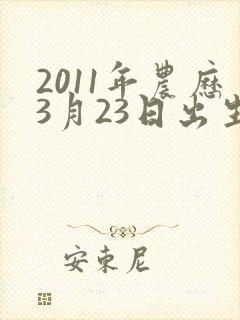 2011年農歷
3月23日出生
安東尼